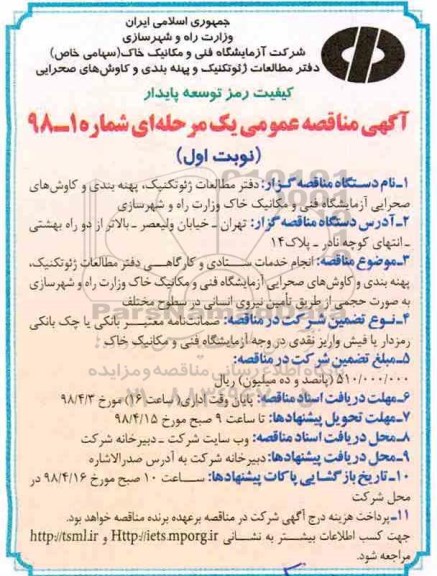 جمهوری اسلامی ایران
وزارت راه و شهرسازی
شرکت آزمایشگاه فنی و مکانیک خاک(سهامی خاص)
دفتر مطالعات ژئوتکنیک و پهنه بندی و کاوش‌های صحرایی
کیفیت رمز توسعه پایدار
آگهی مناقصه عمومی یک مرحله‌ای شماره ۱ـ۹۸
(نوبت اول)
۱ـ نام دستگاه مناقصه گزار: دفتر مطالعات ژئوتکنیک، پهنه بندی و کاوش‌های
صحرایی آزمایشگاه فنی و مکانیک خاک وزارت راه و شهرسازی
۲ـ آدرس دستگاه مناقصه گزار: تهران ـ خیابان ولیعصر ـ بالاتر از دو راه بهشتی
ـ انتهای کوچه نادر ـ پلاک ۱۴
۳ـ موضوع مناقصه: انجام خدمات ستادی و کارگاهی دفتر مطالعات ژئوتکنیک،
پهنه بندی و کاوش‌های صحرایی آزمایشگاه فنی و مکانیک خاک وزارت راه و شهرسازی
به صورت حجمی از طریق تأمین نیروی انسانی در سطوح مختلف
۴ـ نوع تضمین شرکت در مناقصه: ضمانت‌نامه معتبر بانکی یا چک بانکی
رمزدار یا فیش واریز نقدی در وجه آزمایشگاه فنی و مکانیک خاک
۵ـ مبلغ تضمین شرکت در مناقصه:
۵۱۰/۰۰۰/۰۰۰ (پانصد و ده میلیون) ریال
۶ـ مهلت دریافت اسناد مناقصه: پایان وقت اداری(ساعت ۱۶) مورخ ۹۸/۴/۳
۷ـ مهلت تحویل پیشنهادها: تا ساعت ۹ صبح مورخ ۹۸/۴/۱۵
۸ـ محل دریافت اسناد مناقصه: وب سایت شرکت ـ دبیرخانه شرکت
۹ـ محل دریافت پیشنهادها: دبیرخانه شرکت به آدرس صدرالاشاره
۱۰ـ تاریخ بازگشایی پاکات پیشنهادها: ساعت ۱۰ صبح مورخ ۹۸/۴/۱۶ در
محل شرکت
۱۱ـ پرداخت هزینه درج آگهی شرکت در مناقصه برعهده برنده مناقصه خواهد بود.
جهت کسب اطلاعات بیشتر به نشانی Http://iets.mporg.ir و http://tsml.ir
مراجعه شود.